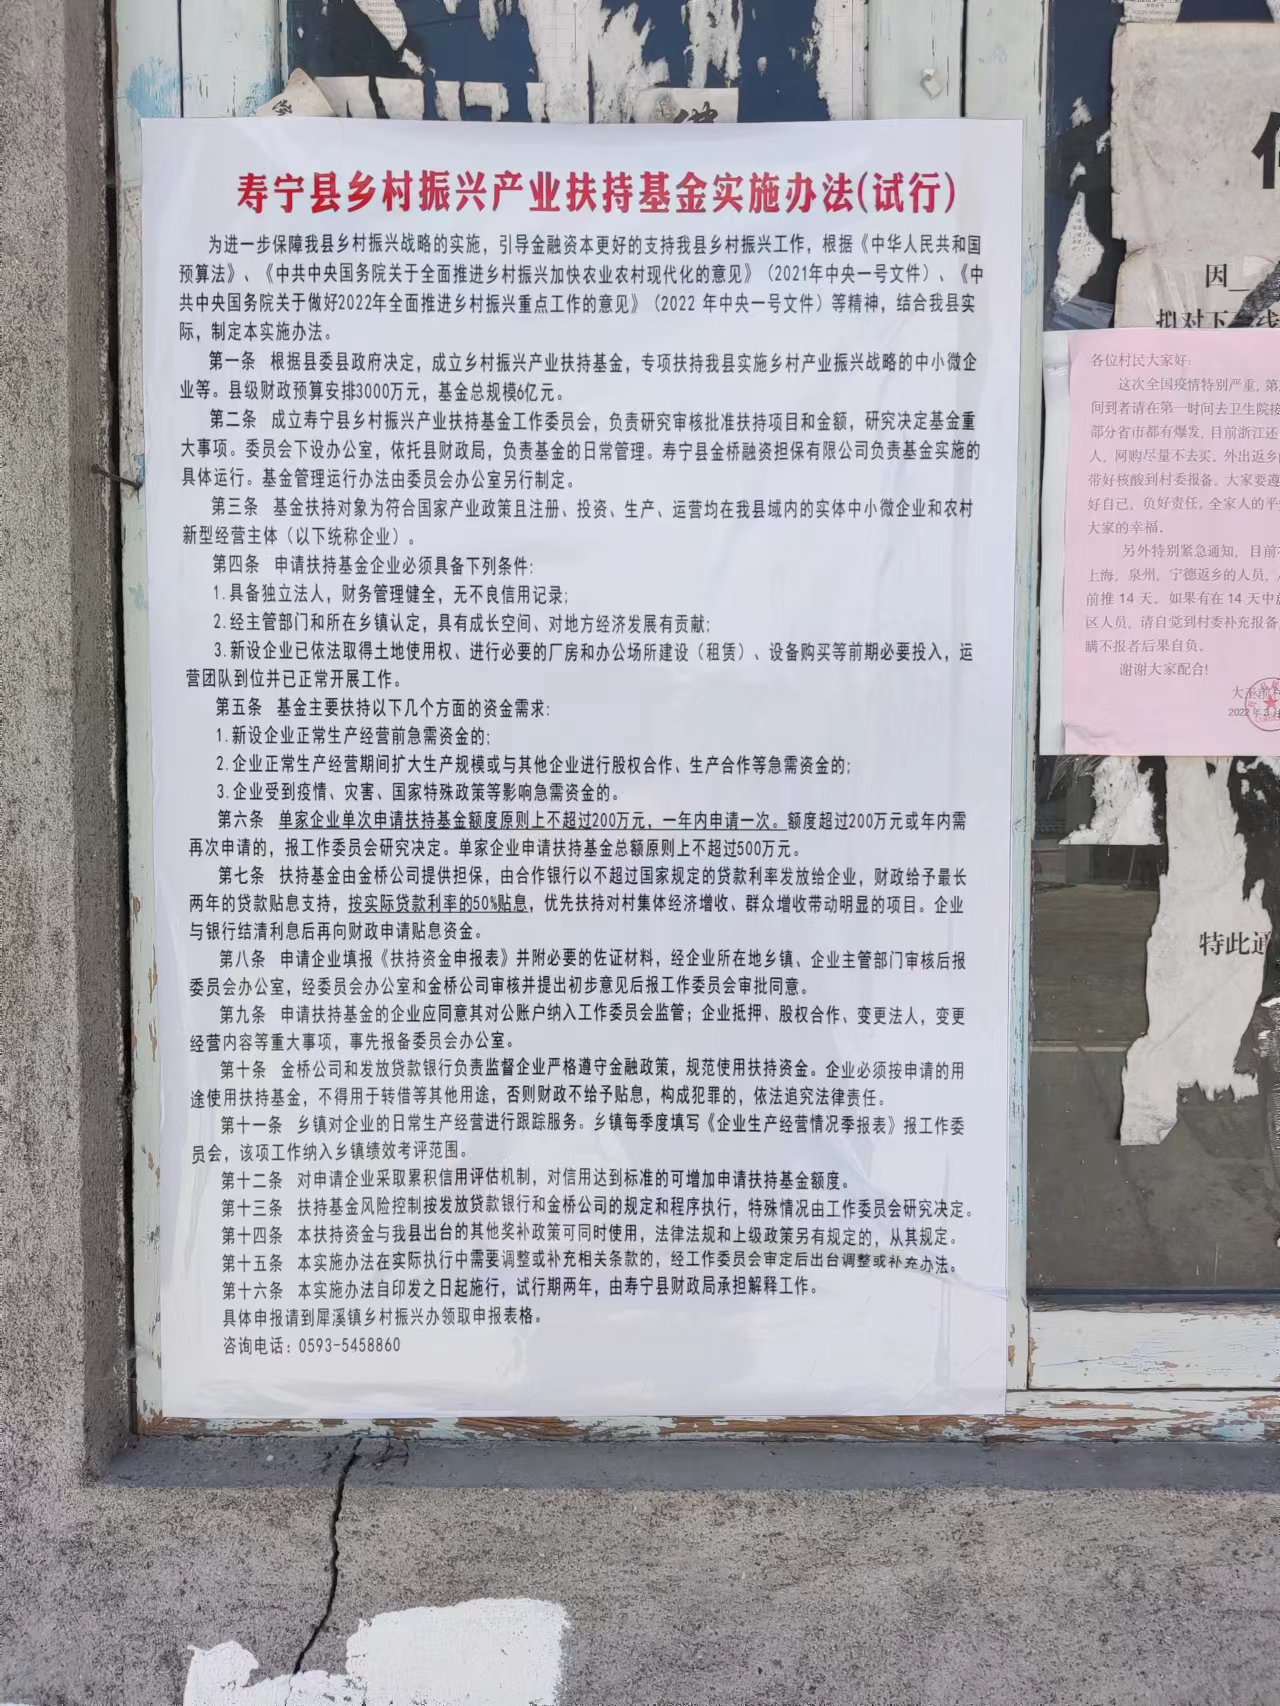 寿宁县乡村振兴产业扶持基金实施办法(试行)
为进一步保障我县乡村振兴战略的实施，引导金融资本更好的支持我县乡村振兴工作，根据《中华人民共和国
预算法》、《中共中央国务院关于全面推进乡村振兴加快农业农村现代化的意见》（2021年中央一号文件）、《中
共中央国务院关于做好2022年全面推进乡村振兴重点工作的意见》（2022 年中央一号文件）等精神，结合我县实
际，制定本实施办法。
第一条 根据县委县政府决定，成立乡村振兴产业扶持基金，专项扶持我县实施乡村产业振兴战略的中小微企
业等。县级财政预算安排3000万元，基金总规模6亿元。
第二条 成立寿宁县乡村振兴产业扶持基金工作委员会，负责研究审核批准扶持项目和金额，研究决定基金重
大事项。委员会下设办公室，依托县财政局，负责基金的日常管理。寿宁县金桥融资担保有限公司负责基金实施的
具体运行。基金管理运行办法由委员会办公室另行制定。
第三条 基金扶持对象为符合国家产业政策且注册、投资、生产、运营均在我县域内的实体中小微企业和农村
新型经营主体（以下统称企业）。
第四条 申请扶持基金企业必须具备下列条件:
1.具备独立法人，财务管理健全，无不良信用记录;
2.经主管部门和所在乡镇认定，具有成长空间、对地方经济发展有贡献;
3.新设企业已依法取得土地使用权、进行必要的厂房和办公场所建设（租赁）、设备购买等前期必要投入，运
营团队到位并已正常开展工作。
第五条 基金主要扶持以下几个方面的资金需求:
1.新设企业正常生产经营前急需资金的;
2.企业正常生产经营期间扩大生产规模或与其他企业进行股权合作、生产合作等急需资金的;
3.企业受到疫情、灾害、国家特殊政策等影响急需资金的。
第六条 单家企业单次申请扶持基金额度原则上不超过200万元，一年内申请一次。额度超过200万元或年内需
再次申请的，报工作委员会研究决定。单家企业申请扶持基金总额原则上不超过500万元。
第七条 扶持基金由金桥公司提供担保，由合作银行以不超过国家规定的贷款利率发放给企业，财政给予最长
两年的贷款贴息支持，按实际贷款利率的50%贴息，优先扶持对村集体经济增收、群众增收带动明显的项目。企业
与银行结清利息后再向财政申请贴息资金。
第八条 申请企业填报《扶持资金申报表》并附必要的佐证材料，经企业所在地乡镇、企业主管部门审核后报
委员会办公室，经委员会办公室和金桥公司审核并提出初步意见后报工作委员会审批同意。
第九条 申请扶持基金的企业应同意其对公账户纳入工作委员会监管；企业抵押、股权合作、变更法人，变更
经营内容等重大事项，事先报备委员会办公室。
第十条 金桥公司和发放贷款银行负责监督企业严格遵守金融政策，规范使用扶持资金。企业必须按申请的用
途使用扶持基金，不得用于转借等其他用途，否则财政不给予贴息，构成犯罪的，依法追究法律责任。
第十一条 乡镇对企业的日常生产经营进行跟踪服务。乡镇每季度填写《企业生产经营情况季报表》报工作委
员会，该项工作纳入乡镇绩效考评范围。
第十二条 对申请企业采取累积信用评估机制，对信用达到标准的可增加申请扶持基金额度。
第十三条 扶持基金风险控制按发放贷款银行和金桥公司的规定和程序执行，特殊情况由工作委员会研究决定。
第十四条 本扶持资金与我县出台的其他奖补政策可同时使用，法律法规和上级政策另有规定的，从其规定。
第十五条 本实施办法在实际执行中需要调整或补充相关条款的，经工作委员会审定后出台调整或补充办法。
第十六条 本实施办法自印发之日起施行，试行期两年，由寿宁县财政局承担解释工作。
具体申报请到犀溪镇乡村振兴办领取申报表格。
咨询电话：0593-5458860
因
拟对下
各位村民大家好:
这次全国疫情特别严重,第
间到者请在第一时间去卫生院接
部分省市都有爆发,目前浙江还
人,网购尽量不去买、外出返乡
带好核酸到村委报备。大家要遵
好自己,负好责任,全家人的平
大家的幸福。
另外特别紧急通知,目前
上海,泉州,宁德返乡的人员,
前推 14 天。如果有在 14 天中
区人员,请自觉到村委补充报备
瞒不报者后果自负。
谢谢大家配合!
2022 年 3 月
特此通